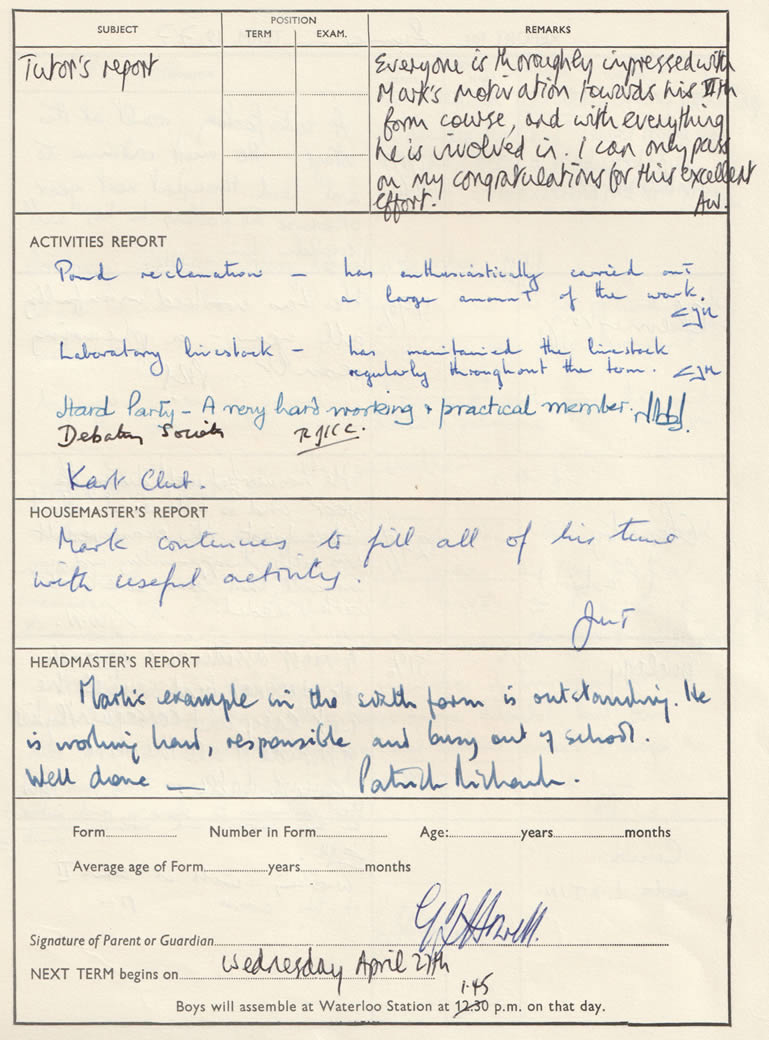 SUBJECT POSITION REMARKS
TERM EXAM.
Tutor's report
Everyone is thoroughly impressed with
Mark's motivation towards his VIth
form course, and with everything
he is involved in. I can only pass
on my congratulations for this excellent
effort. AW.
ACTIVITIES REPORT
Pond reclamation — has enthusiastically carried out
a large amount of the work.
CJH
Laboratory livestock — has maintained the livestock
regularly throughout the term. CJH
Hard Party - A very hard working + practical member.
Debating Society RJCC.
Kart Club.
HOUSEMASTER'S REPORT
Mark continues to fill all of his time
with useful activity.
HEADMASTER'S REPORT
Mark's example in the sixth form is outstanding. He
is working hard, responsible and busy out of school.
Well done — Patrick
Form Number in Form Age: years months
Average age of Form years months
Signature of Parent or Guardian
NEXT TERM begins on Wednesday April 27th
1.45
Boys will assemble at Waterloo Station at 12.30 p.m. on that day.